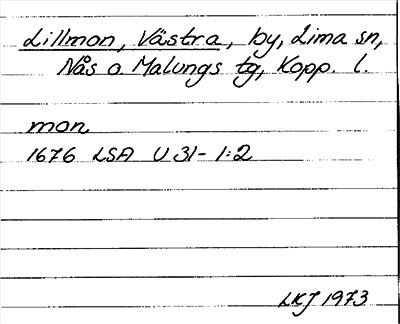 Lillmon, Västra, by, Lima sn,
Nås o. Malungs tg, Kopp. l.
mon
1676 LSA U 31-1:2
LKJ 1973